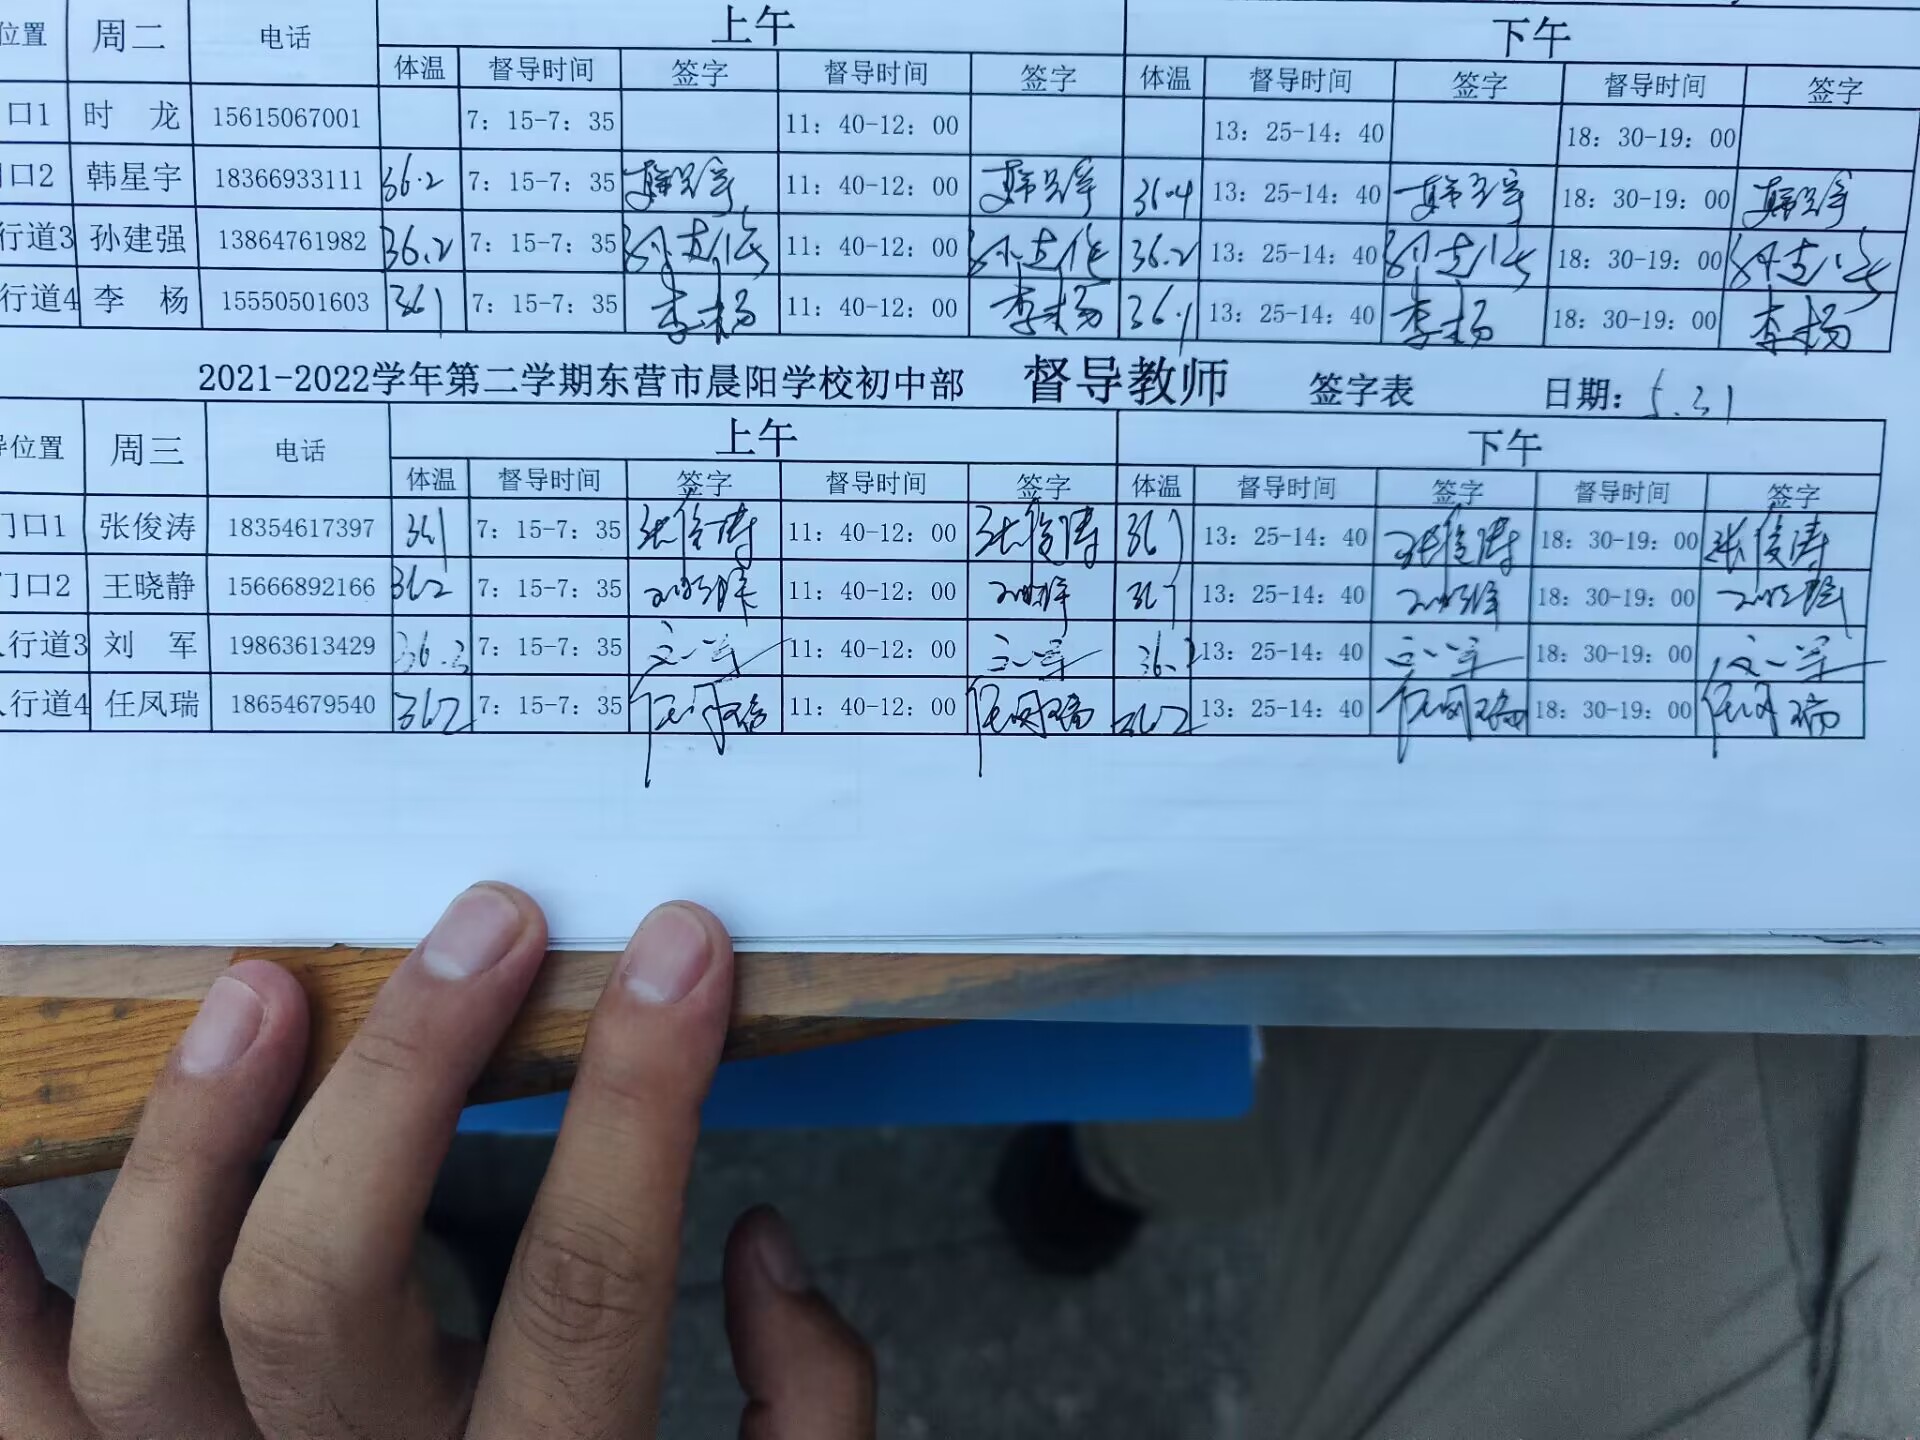 位置 周二 电话 上午 下午
体温 督导时间 签字 督导时间 签字 体温 督导时间 签字 督导时间 签字
口1 时 龙 15615067001 7: 15-7: 35 11: 40-12: 00 13: 25-14: 40 18: 30-19: 00
口2 韩星宇 18366933111 36.2 7: 15-7: 35 韩星宇 11: 40-12: 00 韩星宇 36.4 13: 25-14: 40 韩星宇 18: 30-19: 00 韩星宇
行道3 孙建强 13864761982 36.2 7: 15-7: 35 孙建强 11: 40-12: 00 孙建强 36.2 13: 25-14: 40 孙建强 18: 30-19: 00 孙建强
行道4 李 杨 15550501603 361 7: 15-7: 35 李杨 11: 40-12: 00 李杨 36.1 13: 25-14: 40 李杨 18: 30-19: 00 李杨
2021-2022学年第二学期东营市晨阳学校初中部 督导教师 签字表 日期: 5.31
导位置 周三 电话 上午 下午
体温 督导时间 签字 督导时间 签字 体温 督导时间 签字 督导时间 签字
门口1 张俊涛 18354617397 361 7: 15-7: 35 张俊涛 11: 40-12: 00 张俊涛 367 13: 25-14: 40 张俊涛 18: 30-19: 00 张俊涛
门口2 王晓静 15666892166 362 7: 15-7: 35 王晓静 11: 40-12: 00 王晓静 367 13: 25-14: 40 王晓静 18: 30-19: 00 王晓静
人行道3 刘 军 19863613429 36.3 7: 15-7: 35 刘军 11: 40-12: 00 刘军 36. 13: 25-14: 40 刘军 18: 30-19: 00 刘军
人行道4 任凤瑞 18654679540 362 7: 15-7: 35 任凤瑞 11: 40-12: 00 任凤瑞 362 13: 25-14: 40 任凤瑞 18: 30-19: 00 任凤瑞